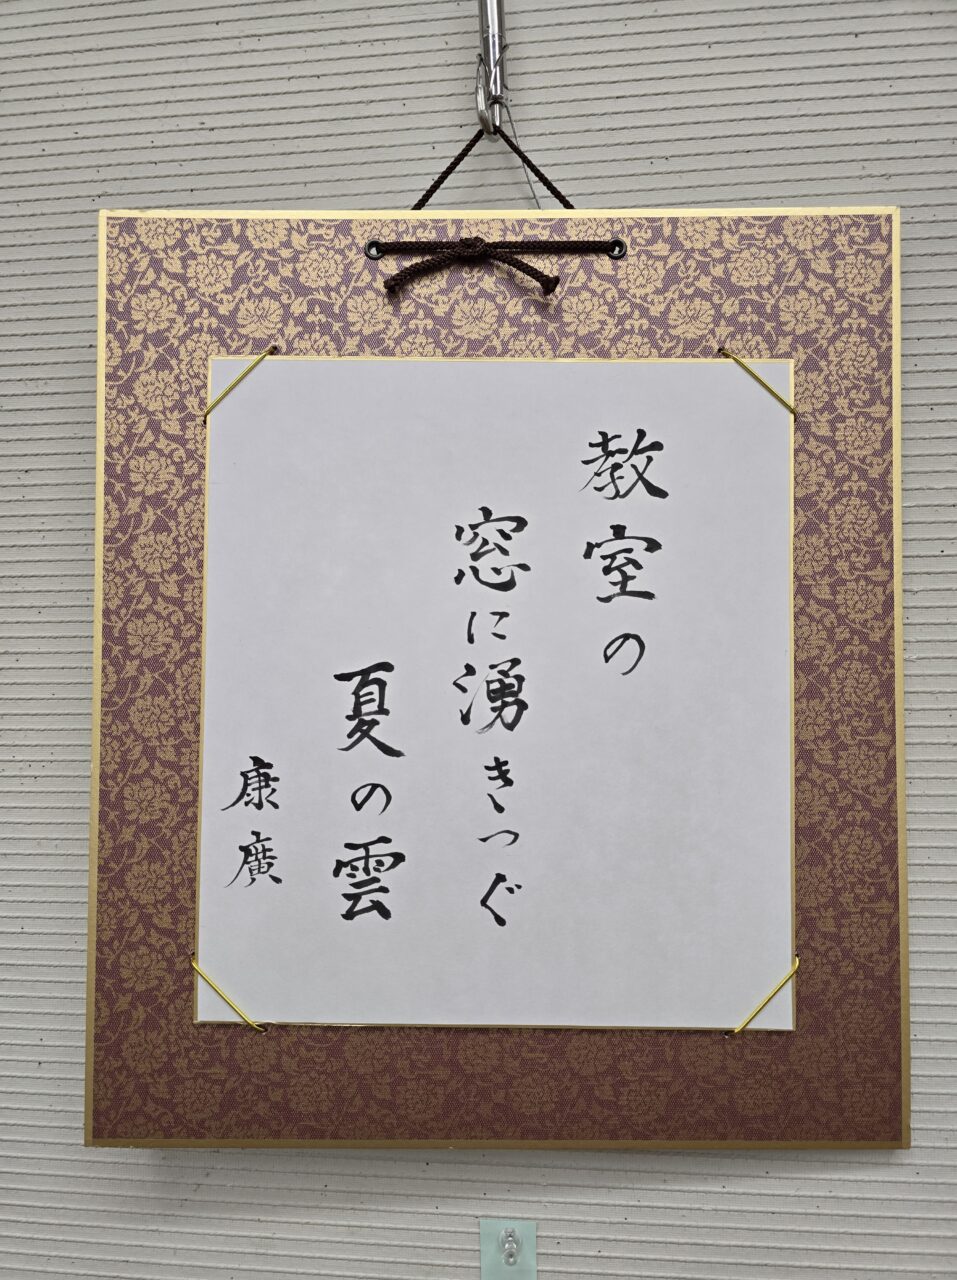 教室の
窓に湧きつぐ
夏の雲
康廣